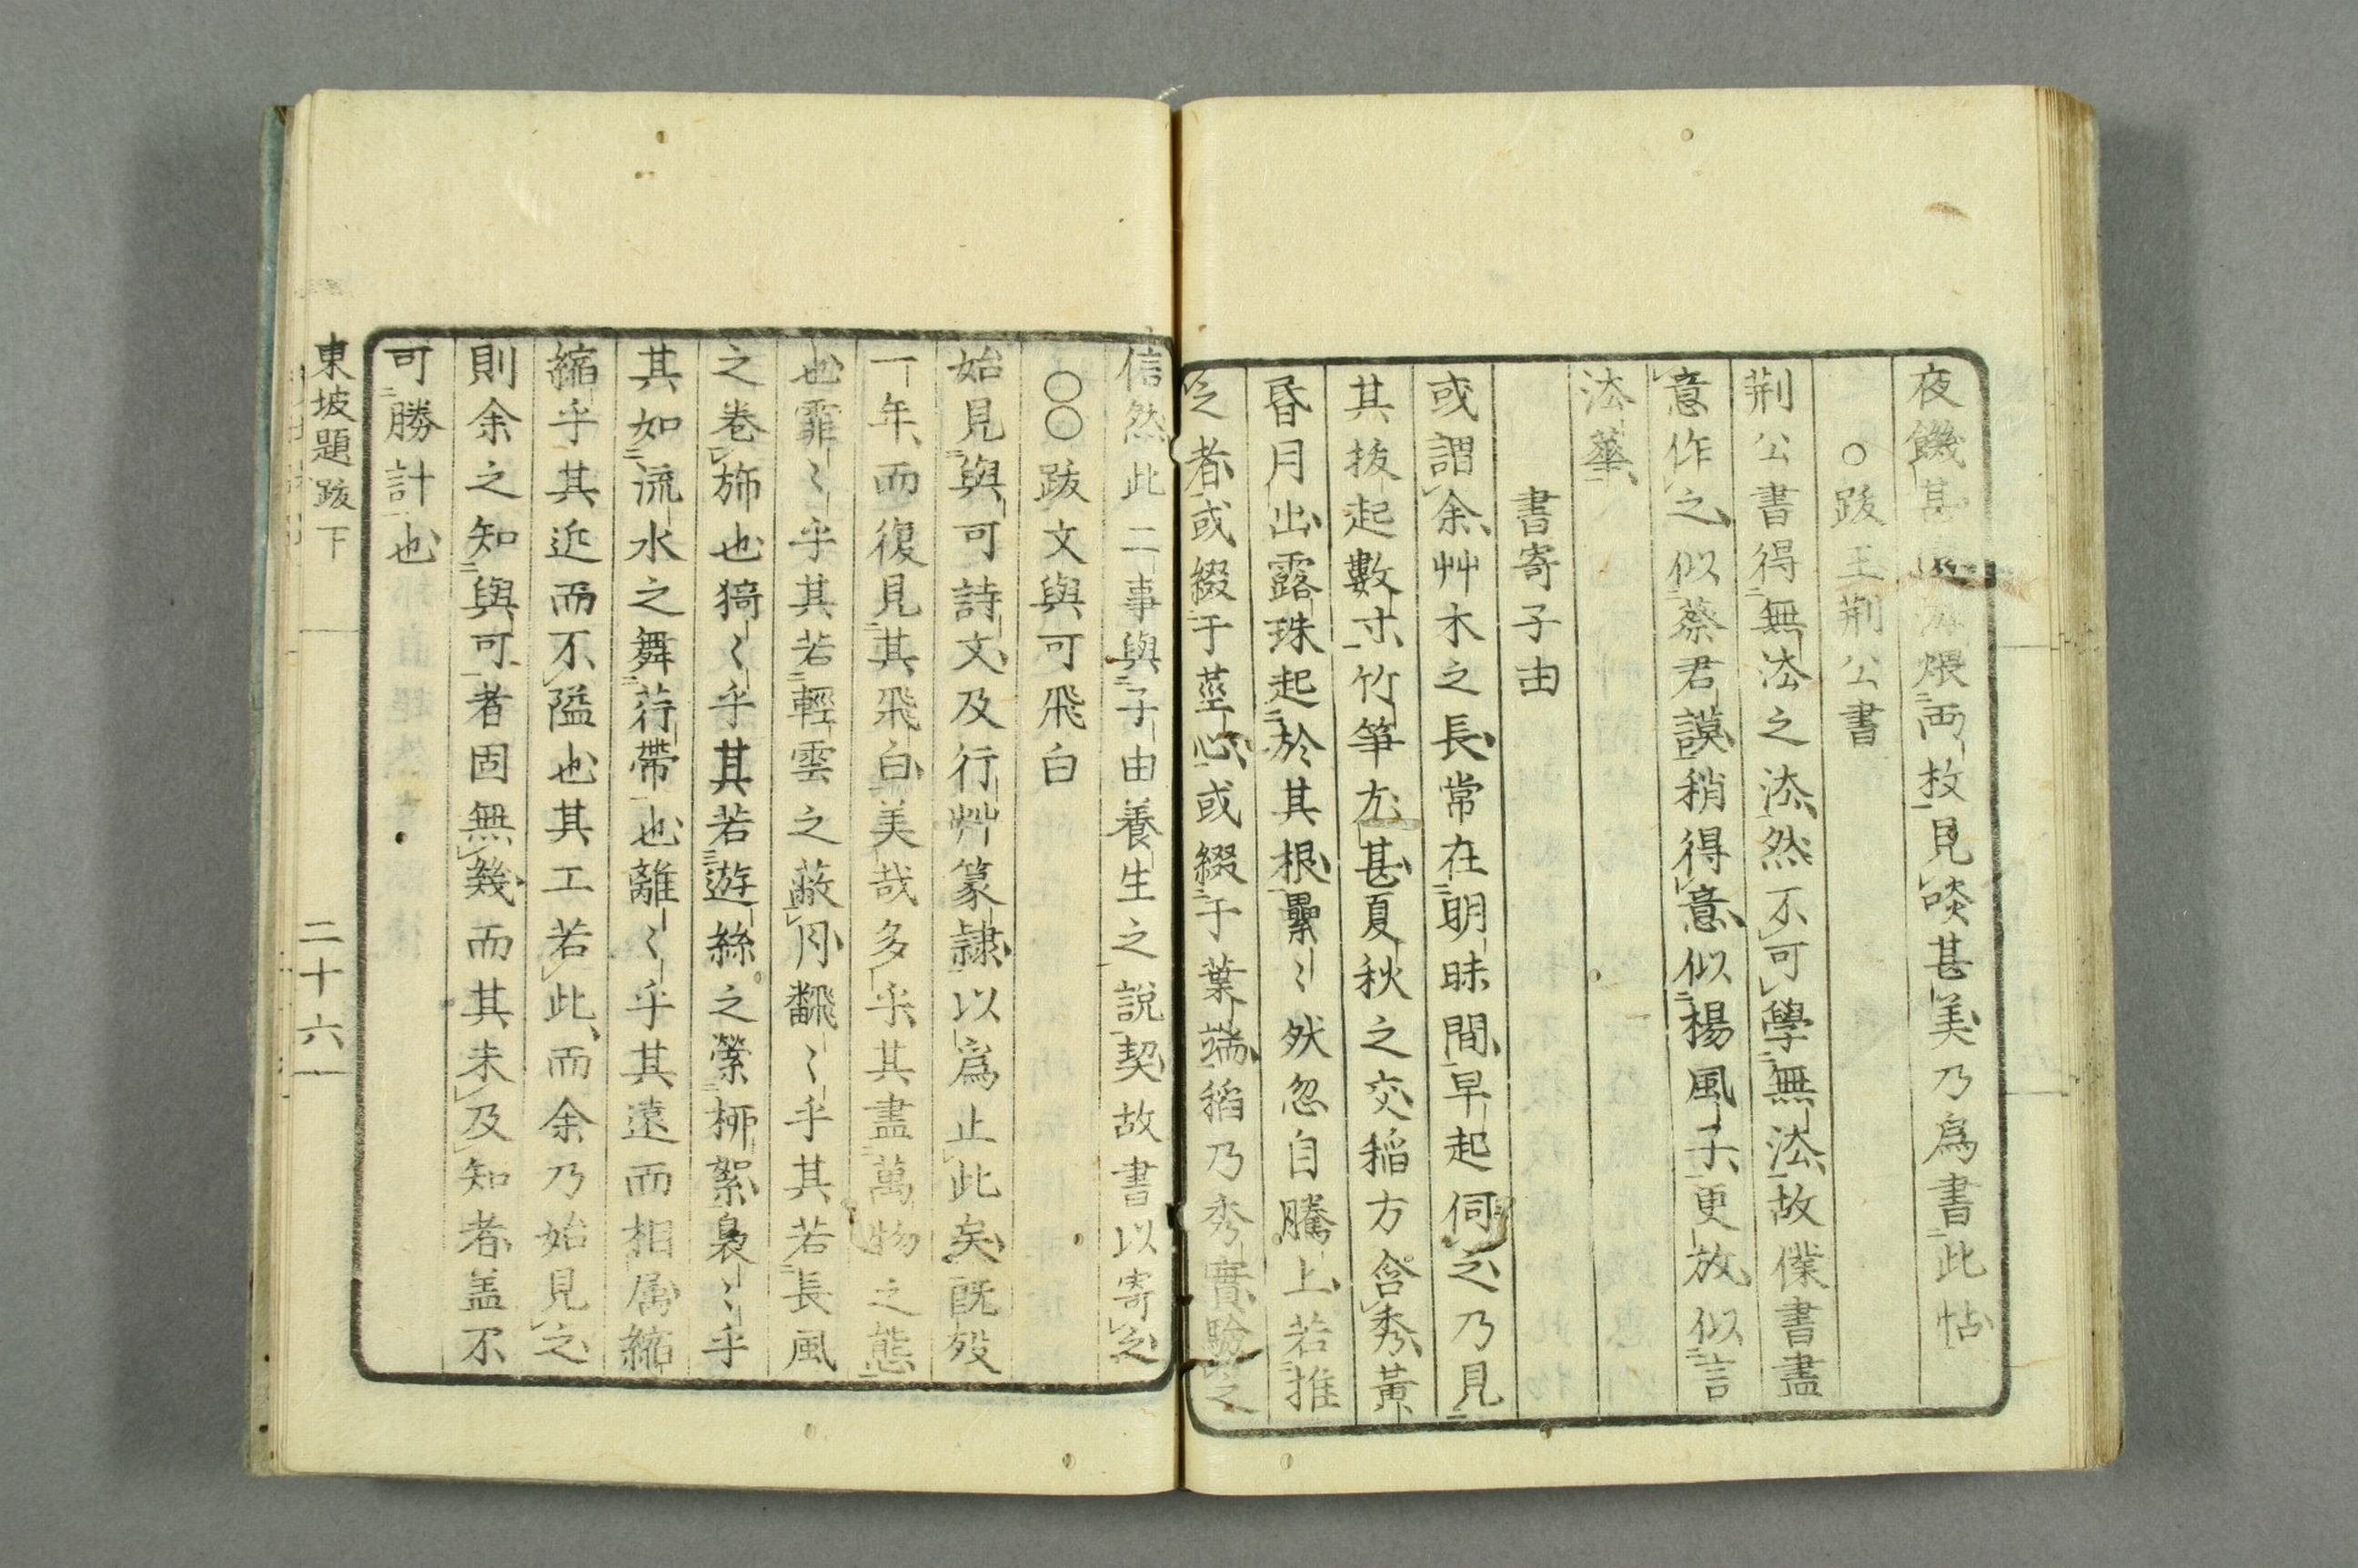 夜饑甚煨兩枚見啖甚美乃爲書此帖
○跋王荆公書
荆公書得無法之法然不可學無法故僕書盡
意作之似蔡君謨稍得意似楊風子更放似言
法華
書寄子由
或謂余艸木之長常在明昧間早起伺之乃見
其拔起數寸竹筍尤甚夏秋之交稻方含秀黃
昏月出露珠起於其根纍〻然忽自騰上若推
之者或綴于莖心或綴于葉端稻乃秀實驗之
信然此二事與子由養生之說契故書以寄之
○○跋文與可飛白
始見與可詩文及行艸篆隷以爲止此矣既歿
一年而復見其飛白美哉多乎其盡萬物之態
也霏〻乎其若輕雲之蔽月翻〻乎其若長風
之卷旆也猗〻乎其若遊絲之縈柳絮裊〻乎
其如流水之舞荇帶也離〻乎其遠而相属縮
縮乎其近而不隘也其工若此而余乃始見之
則余之知與可者固無幾而其未及知者盖不
可勝計也
東坡題跋下
二十六